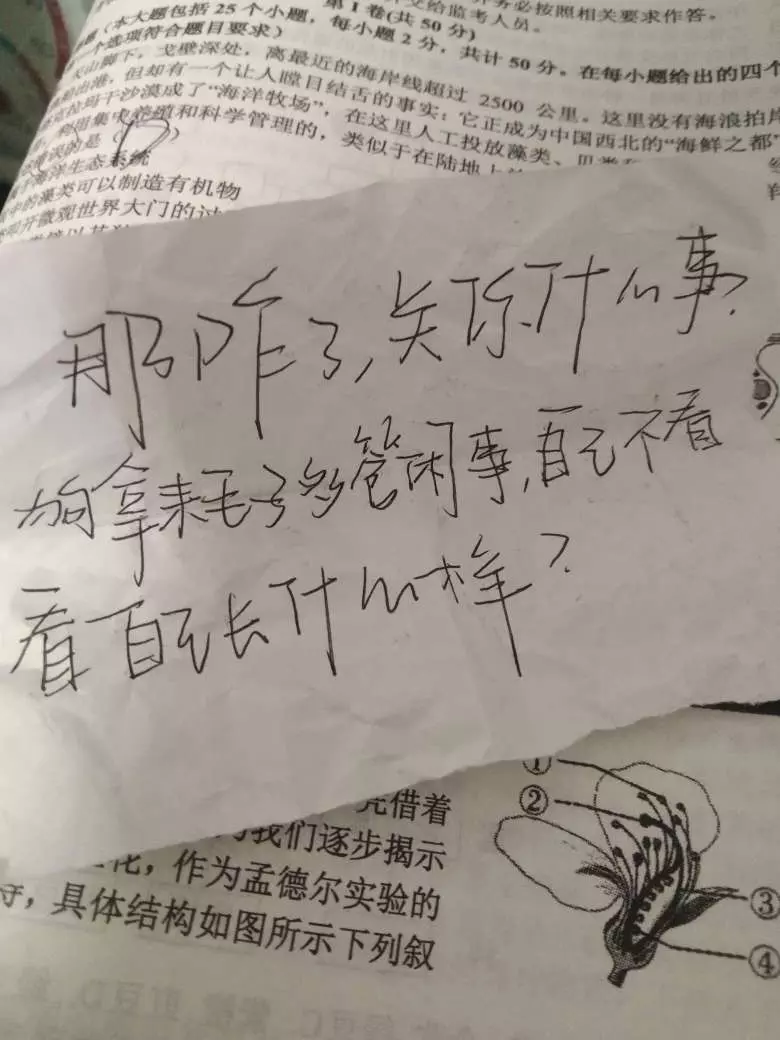 第Ⅰ卷(共 50 分)
(本大题包括 25 个小题，每小题 2 分，共计 50 分。在每小题给出的四个
一个选项符合题目要求)
天山脚下，戈壁深处，离最近的海岸线超过 2500 公里。这里没有海浪拍岸
出港，但却有一个让人瞠目结舌的事实：它正成为中国西北的“海鲜之都”
克拉玛干沙漠成了“海洋牧场”，在这里人工投放藻类、贝类
利用集中养殖和科学管理的，类似于在陆地上
误的是( B )
海洋生态系统
中的藻类可以制造有机物
开微观世界大门的过
那咋了,关你什么事,
狗拿来毛子多管闲事,自己不看
看自己长什么样?
凭借着
我们逐步揭示
化，作为孟德尔实验的
具体结构如图所示下列叙
①
②
③
④